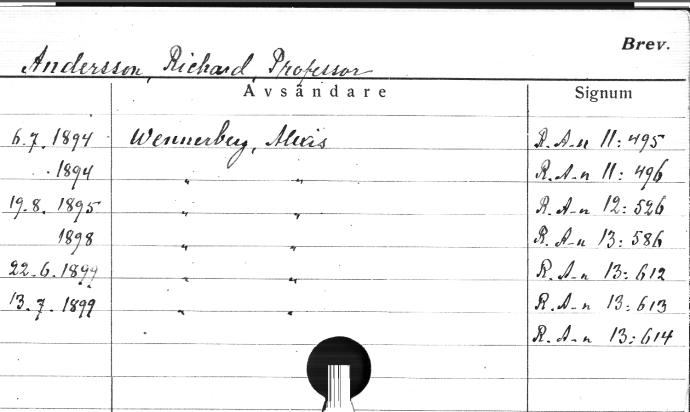 Brev.
Andersson, Richard, Professor
Avsändare Signum
6.7.1894 Wennerberg, Alexis R.A-n 11:495
1894 " " R.A-n 11:496
19.8.1895 " " R.A-n 12:526
1898 " " R.A-n 13:586
22.6.1899 " " R.A-n 13:612
13.7.1899 " " R.A-n 13:613
R.A-n 13:614